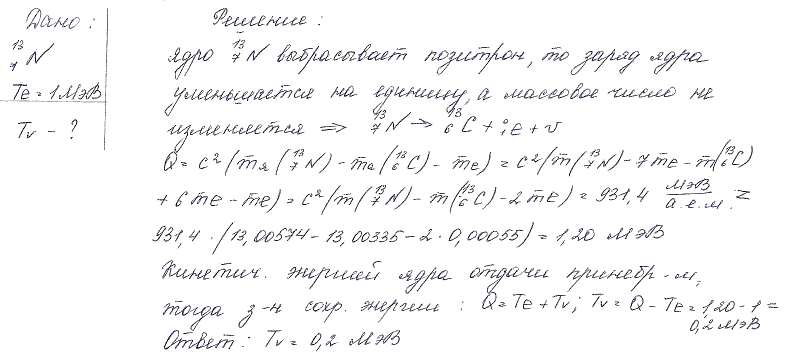 Дано: Решение:
¹³₇N ядро ¹³₇N выбрасывает позитрон, то заряд ядра
Te = 1 МэВ уменьшается на единицу, а массовое число не
Tν - ? изменяется ⇒ ¹³₇N → ¹³₆C + ⁰₁e + ν
Q = c²(mя(¹³₇N) - mя(¹³₆C) - me) = c²(m(¹³₇N) - 7me - m(¹³₆C)
+ 6me - me) = c²(m(¹³₇N) - m(¹³₆C) - 2me) = 931,4 МэВ/а.е.м. ×
931,4 · (13,00574 - 13,00335 - 2 · 0,00055) = 1,20 МэВ
Кинетич. энергией ядра отдачи принебр-м,
тогда з-н сохр. энергии: Q = Te + Tν; Tν = Q - Te = 1,20 - 1 =
0,2 МэВ
Ответ: Tν = 0,2 МэВ